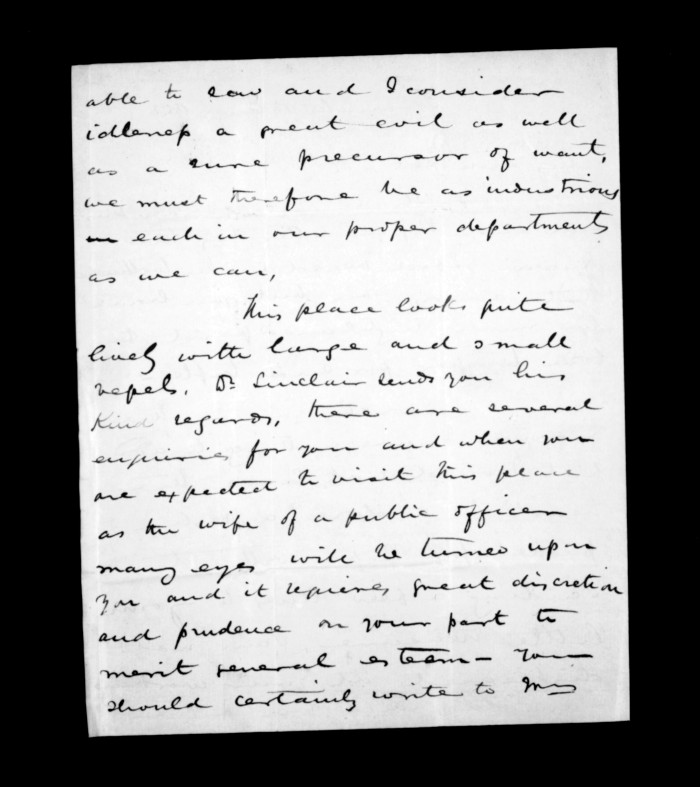 able to sow and I consider
idleness a great evil as well
as a sure precursor of want,
we must therefore be as industrious
each in our proper departments
as we can,
This place looks quite
lively with large and small
vessels. Dr Sinclair sends you his
Kind regards, there are several
enquiries for you and when you
are expected to visit this place
as the wife of a public officer
many eyes will be turned upon
you and it requires great discretion
and prudence on your part to
merit general esteem - you
should certainly write to Mrs